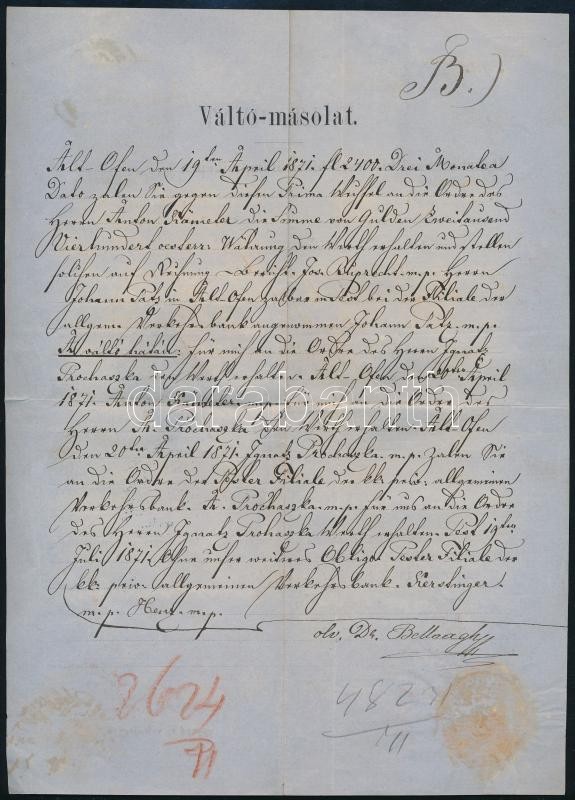 B.)
Váltó-másolat.
Alt-Ofen, den 19ten April 1871. fl 2400. Drei Monate a
Dato zalen Sie gegen diesen Prima Wechsel an die Ordre des
Herrn Anton Krämeter die Summe von Gulden Zweitausend
Vierhundert oesterr: Währung den Werth erhalten und stellen
solchen auf Rechnung - Bericht. Jos. Ruprecht. m.p. Herrn
Johann Patz in Alt-Ofen zalbar in Pest bei der Filiale der
allgem. Verkehrsbank angenommen Johann Patz. m.p.
A váltó hátán: für mich an die Ordre des Herrn Ignatz
Prochaszka den Werth erhalten. Alt-Ofen den April
1871. Anton für mich an die Ordre des
Herrn A. Prochaszka den Werth erhalten Alt-Ofen
den 20ten April 1871. Ignatz Prochaszka. m.p. Zalen Sie
an die Ordre der Pester Filiale der kk: priv: allgemeinen
Verkehrsbank. A. Prochaszka. m.p. für uns an die Ordre
des Herrn Ignatz Prohaszka Werth erhalten. Pest 19ten
Juli 1871. Ohne unser weiteres Obligo Pester Filiale der
kk: priv: allgemeinen Verkehrsbank. Kerstinger.
m.p. Herz. m.p.
olv. Dr. Bellaagh
2624
4823
darabanth